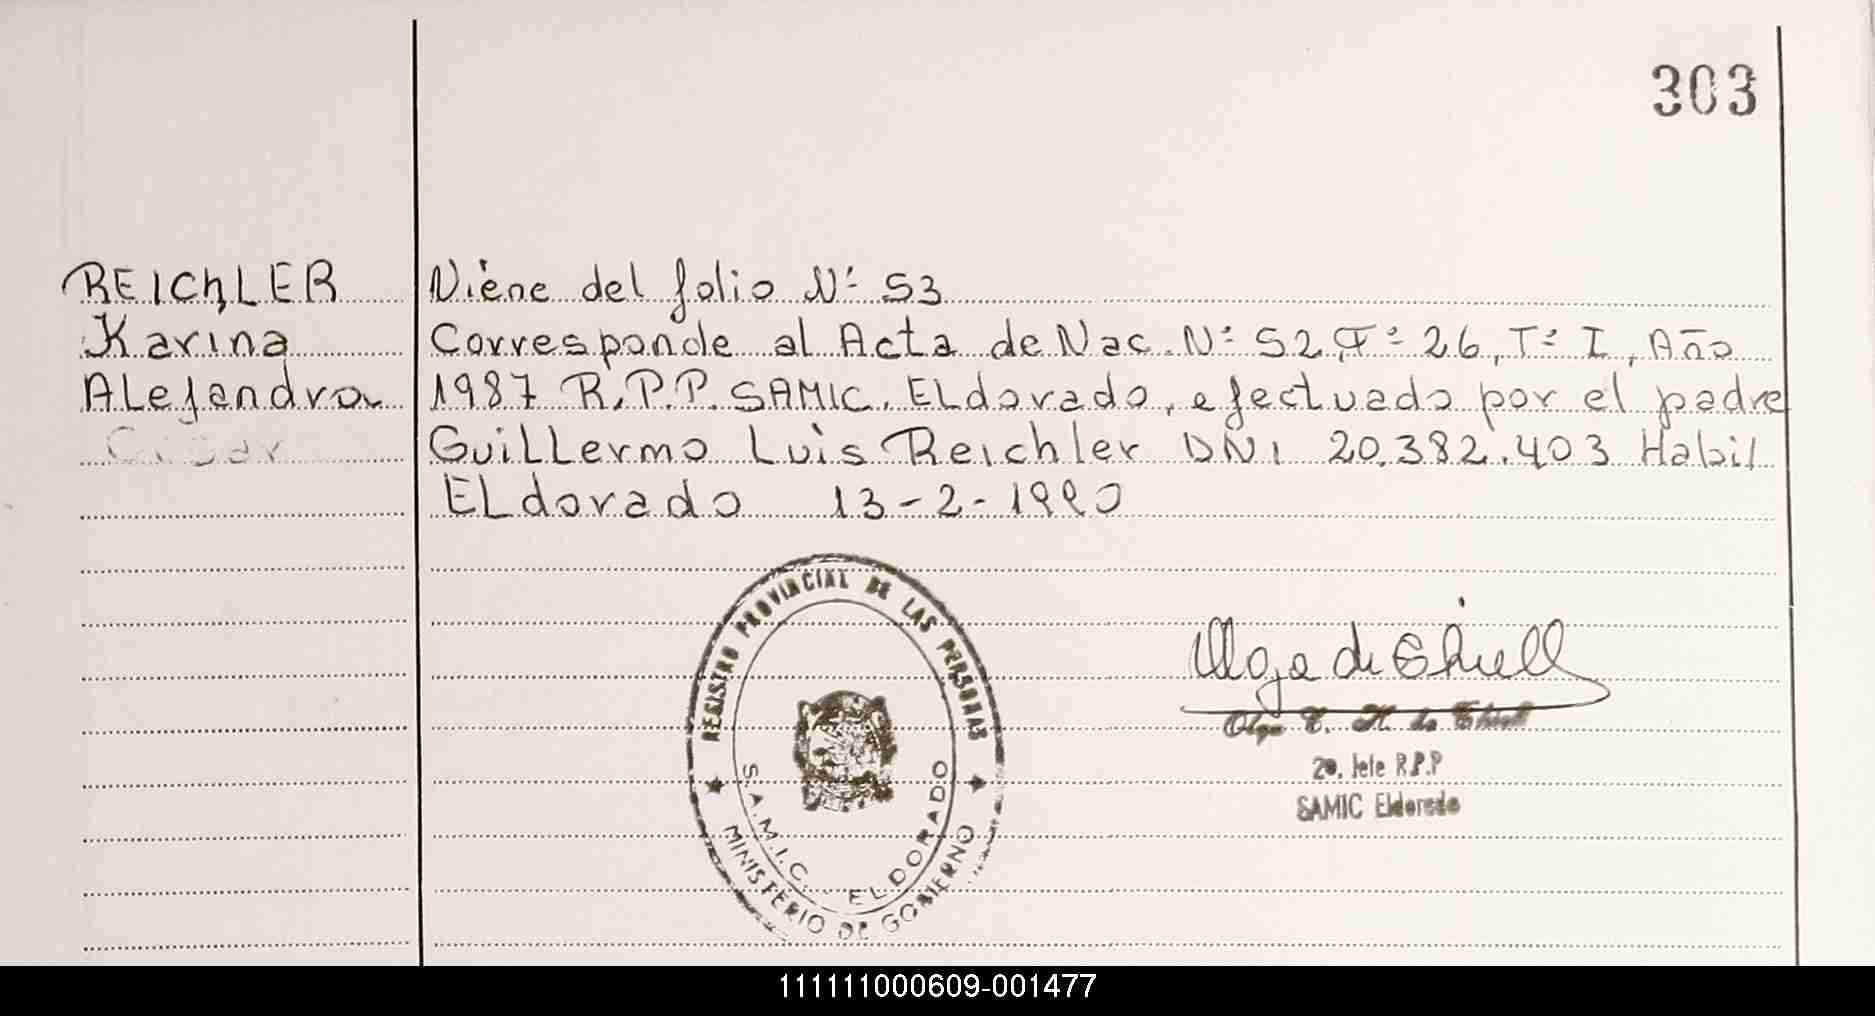 303
REICHLER
Karina
Alejandra
Viene del folio Nº 53
Corresponde al Acta de Nac. Nº 52, Fº 26, Tº I, Año
1987 R.P.P. SAMIC. ELdorado, efectuado por el padre
GuiLLermo Luis Reichler DNI 20.382.403 Habil
ELdorado 13-2-1990
REGISTRO PROVINCIAL DE LAS PERSONAS
S.A.M.I.C. ELDORADO
MINISTERIO DE GOBIERNO
Olga de
Olga
2o. Jefe R.P.P
SAMIC Eldorado
111111000609-001477